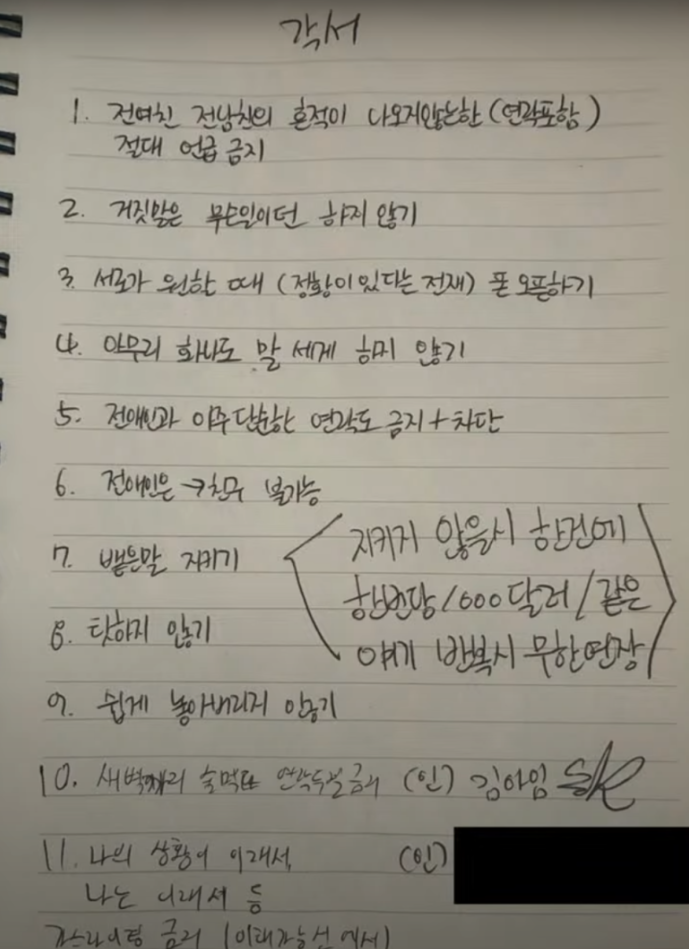 각서
1. 전여친 전남친의 흔적이 나오지않는한 (연락포함)
절대 언급 금지
2. 거짓말은 무슨일이던 하지 않기
3. 서로가 원할 때 (정황이 있다는 전재) 폰 오픈하기
4. 아무리 화나도 말 세게 하지 않기
5. 전애인과 아주 단순한 연락도 금지 + 차단
6. 전애인은 → 친구 불가능
7. 뱉은말 지키기
지키지 않을시 한건에
한번당 1000달러 / 같은
얘기 반복시 무한연장
8. 탓하지 않기
9. 쉽게 놓아버리지 않기
10. 새벽까지 술먹고 금지 (인) 김아임
11. 나의 상황이 이래서, (인)
나는 이래서 등
가스라이팅 금지 (이해가능선에서)